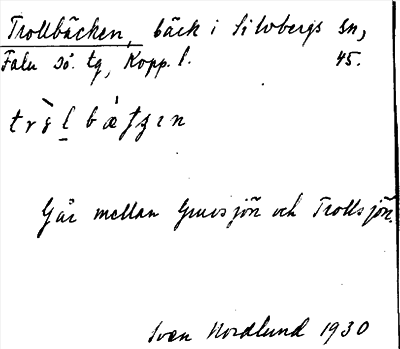 Trollbäcken, bäck i Silvbergs sn,
Falu sö. tg, Kopp. l. 45.
Går mellan Gruvsjön och Trollsjön.
Sven Nordlund 1930